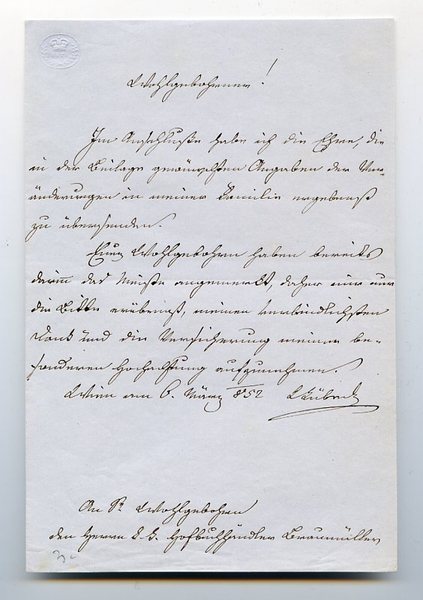 Wohlgebohrner!
Im Anschlusse habe ich die Ehre, die
in der Beilage gewünschten Angaben der Ver-
änderungen in meiner Familie ergebenst
zu übersenden.
Euer Wohlgebohren haben bereits
darin das Meiste angemerkt, daher mir nur
die Bitte erübrigt, meinen verbindlichsten
Dank und die Versicherung meiner be-
sonderen Hochachtung aufzunehmen.
Wien am 6. März 852 Kübeck
An Sr Wohlgebohren
den Herrn k. k. Hofbuchhändler Braumüller